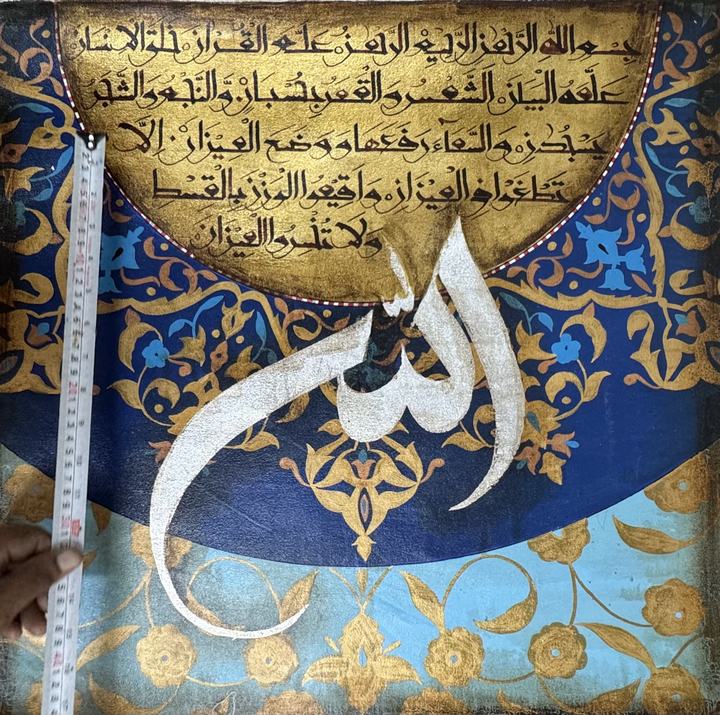 بسم الله الرحمن الرحيم الرحمن علم القران خلق الانسان
علمه البيان الشمس والقمر بحسبان والنجم والشجر
يسجدان والسماء رفعها ووضع الميزان الا
تطغوا في الميزان واقيموا الوزن بالقسط
ولا تخسروا الميزان
الله